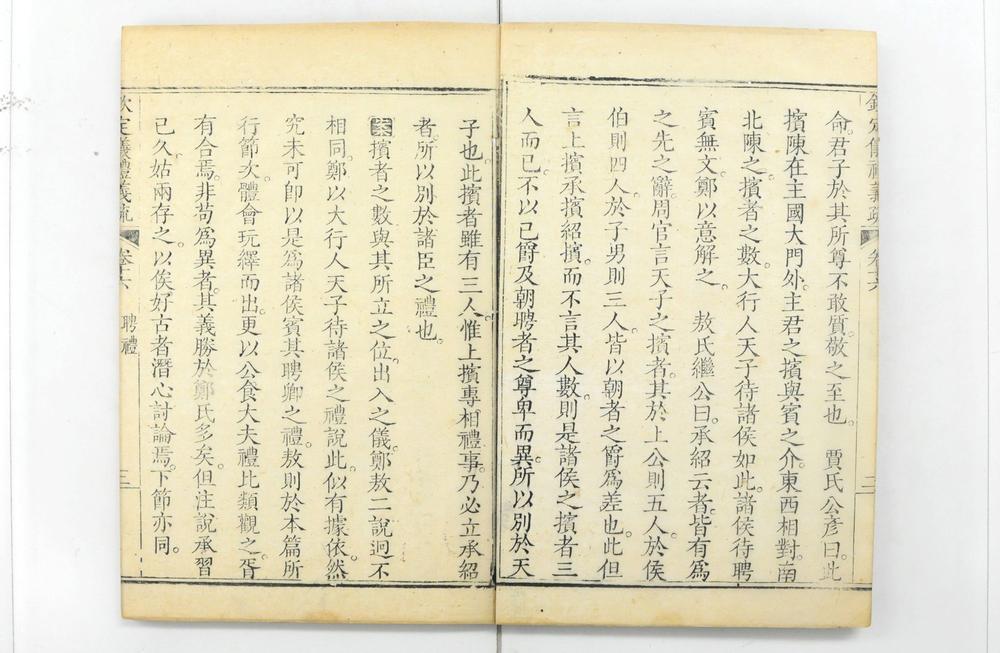 命。君子於其所尊不敢質。敬之至也。　賈氏公彥曰。此
擯陳在主國大門外。主君之擯與賓之介。東西相對。南
北陳之。擯者之數。大行人天子待諸侯如此。諸侯待聘
賓無文。鄭以意解之。　敖氏繼公曰。承紹云者。皆有爲
之先之辭。周官言天子之擯者。其於上公則五人。於侯
伯則四人。於子男則三人。皆以朝者之爵爲差也。此但
言上擯承擯紹擯。而不言其人數。則是諸侯之擯者三
人而已。不以已爵及朝聘者之尊卑而異。所以別於天
子也。此擯者雖有三人。惟上擯專相禮事。乃必立承紹
者。所以別於諸臣之禮也。
擯者之數與其所立之位。出入之儀。鄭敖二說迥不
相同。鄭以大行人天子待諸侯之禮說此。似有據依。然
究未可卽以是爲諸侯賓其聘卿之禮。敖則於本篇所
行節次。體會玩繹而出。更以公食大夫禮比類觀之。胥
有合焉。非苟爲異者。其義勝於鄭氏多矣。但注說承習
已久。姑兩存之。以俟好古者潛心討論焉。下節亦同。
欽定儀禮義疏
卷十六　聘禮
三